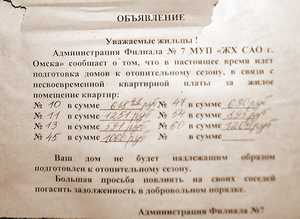 ОБЪЯВЛЕНИЕ
Уважаемые жильцы !
Администрация Филиала № 7 МУП «ЖХ САО г.
Омска» сообщает о том, что в настоящее время идет
подготовка домов к отопительному сезону, в связи с
несвоевременной квартирной платы за жилое
помещение квартир:
№ 10 в сумме руб № в сумме руб
№ 11 в сумме 1251 руб № 54 в сумме руб
№ 13 в сумме руб № 60 в сумме руб
№ 45 в сумме 1000 руб № в сумме
Ваш дом не будет надлежащим образом
подготовлен к отопительному сезону.
Большая просьба повлиять на своих соседей
погасить задолженность в добровольном порядке.
Администрация Филиала №7